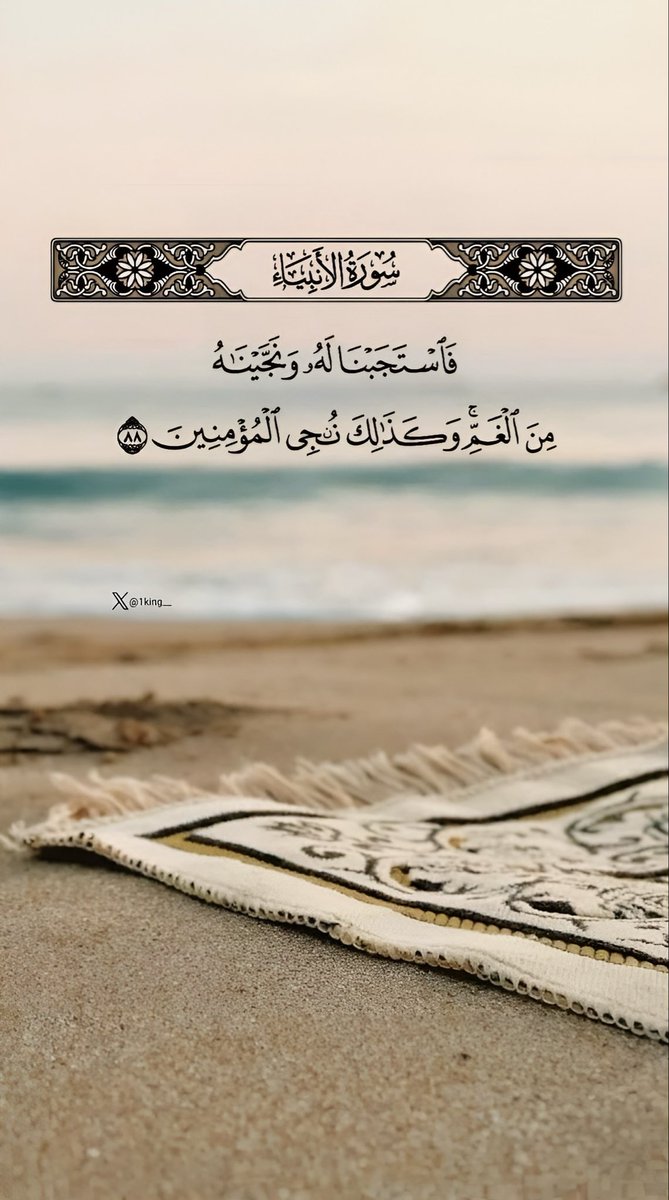 سُورَةُ الأَنبِيَاءِ
فَٱسْتَجَبْنَا لَهُۥ وَنَجَّيْنَٰهُ
مِنَ ٱلْغَمِّ ۚ وَكَذَٰلِكَ نُـۨجِى ٱلْمُؤْمِنِينَ ٨٨
X @1king__